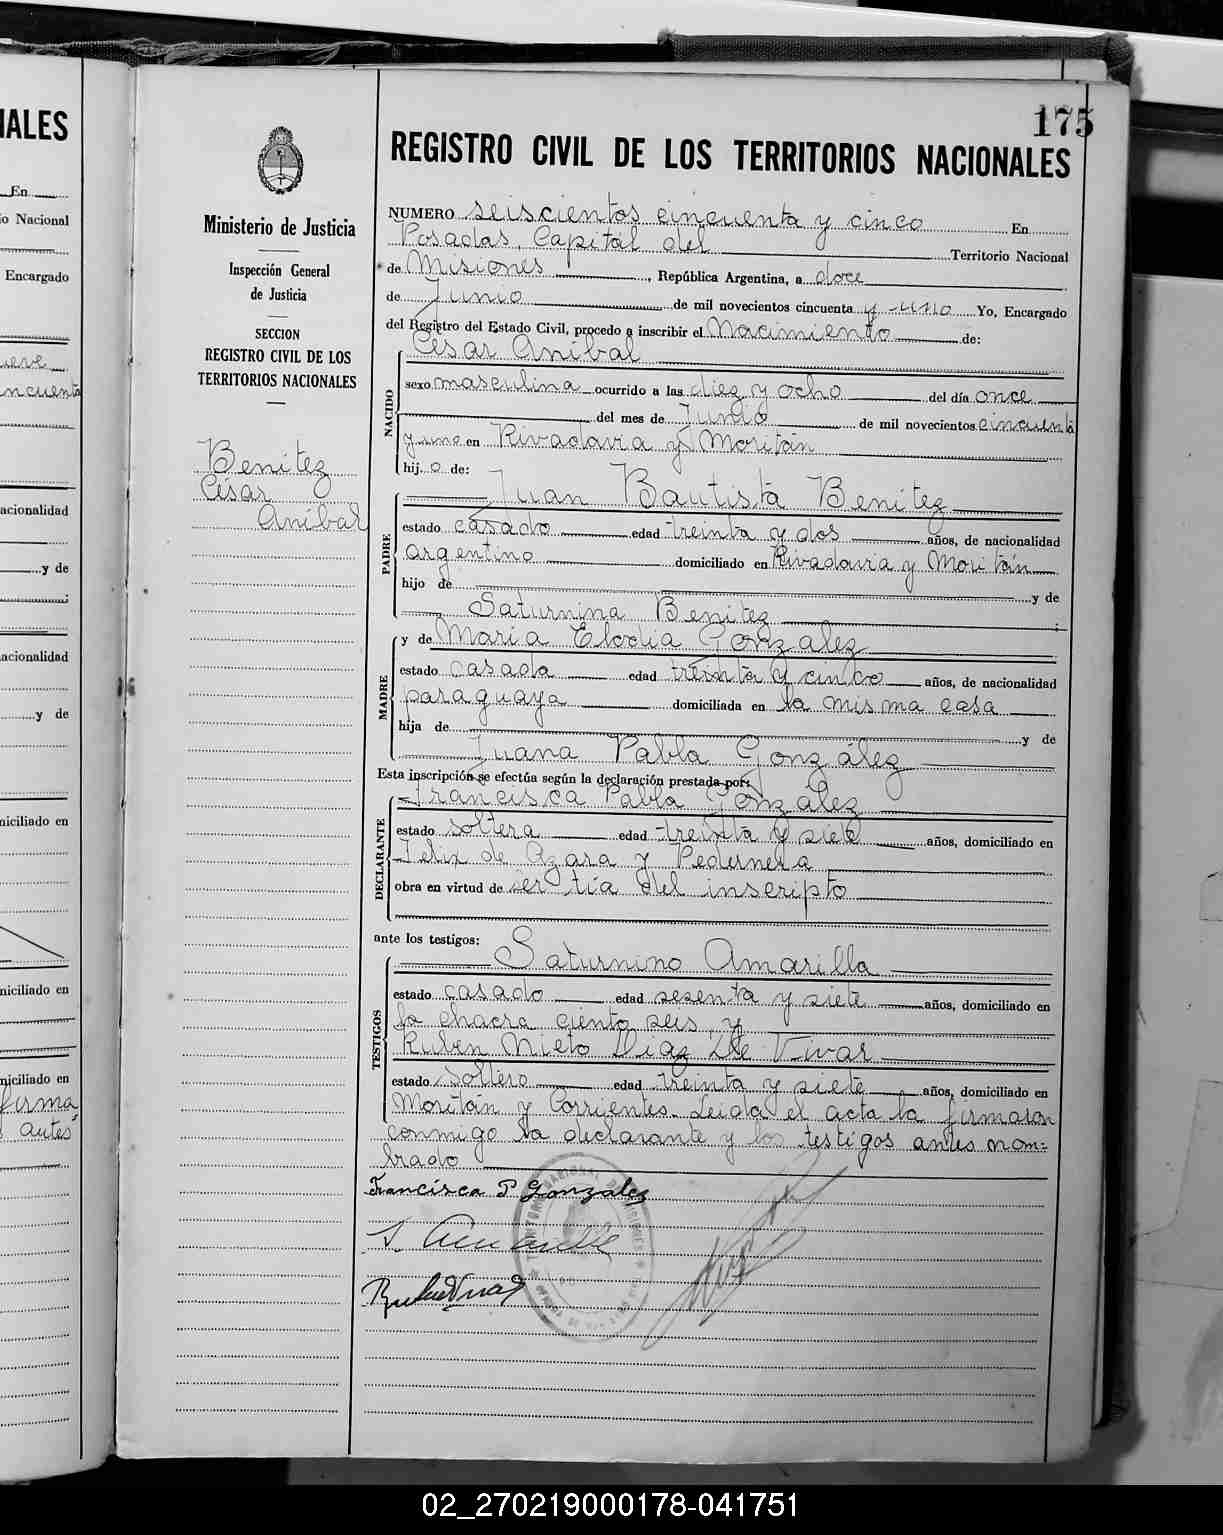 175
REGISTRO CIVIL DE LOS TERRITORIOS NACIONALES
Ministerio de Justicia
Inspección General
de Justicia
SECCION
REGISTRO CIVIL DE LOS
TERRITORIOS NACIONALES
Benitez
César
Anibal
NUMERO seiscientos cincuenta y cinco En
Posadas, Capital del Territorio Nacional
de Misiones, República Argentina, a doce
de Junio de mil novecientos cincuenta y uno Yo, Encargado
del Registro del Estado Civil, procedo a inscribir el Nacimiento de:
César Anibal
NACIDO
sexo masculina ocurrido a las diez y ocho del día once
del mes de Junio de mil novecientos cincuenta
y uno en Rivadavia y Moritán
hij o de:
PADRE
Juan Bautista Benitez
estado casado edad treinta y dos años, de nacionalidad
argentino domiciliado en Rivadavia y Moritán
hijo de y de
Saturnina Benitez ;
MADRE
y de María Elodia González
estado casada edad treinta y cinco años, de nacionalidad
paraguaya domiciliada en la misma casa
hija de y de
Juana Pabla González
Esta inscripción se efectúa según la declaración prestada por:
DECLARANTE
Francisca Pabla González
estado soltera edad treinta y siete años, domiciliado en
Felix de Azara y Pedernera
obra en virtud de ser tía del inscripto
ante los testigos:
TESTIGOS
Saturnino Amarilla
estado casado edad sesenta y siete años, domiciliado en
la chacra ciento seis, y
Rubén Nieto Diaz De Vivar
estado soltero edad treinta y siete años, domiciliado en
Moritán y Corrientes. Leida el acta la firmaron
conmigo la declarante y los testigos antes nom=
brado
Francisca P Gonzalez
S. Amarilla
IALES
En
o Nacional
Encargado
ueve
ncuenta
acionalidad
y de
acionalidad
y de
niciliado en
niciliado en
niciliado en
firma
antes
02_270219000178-041751